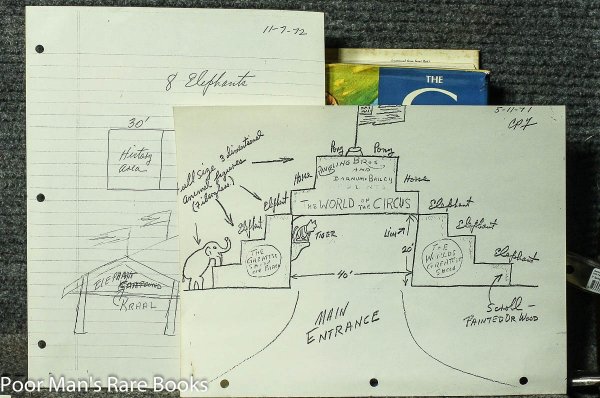 11-7-72
8 Elephants
30'
History
area
ELEPHANT
KRAAL
THE
5-11-71
CPF
Pony
Pony
Full Size 3 dimentional
animal figures
(Fiberglass)
Horse
Horse
RINGLING BROS
AND
BARNUM & BAILEY
THE WORLD OF THE CIRCUS
Elephant
Elephant
Elephant
Elephant
Elephant
TIGER
Lion
20'
THE
GREATEST
SHOW
ON EARTH
THE
WORLDS
GREATEST
SHOW
40'
MAIN
ENTRANCE
Scroll –
PAINTED OR WOOD
Poor Man's Rare Books